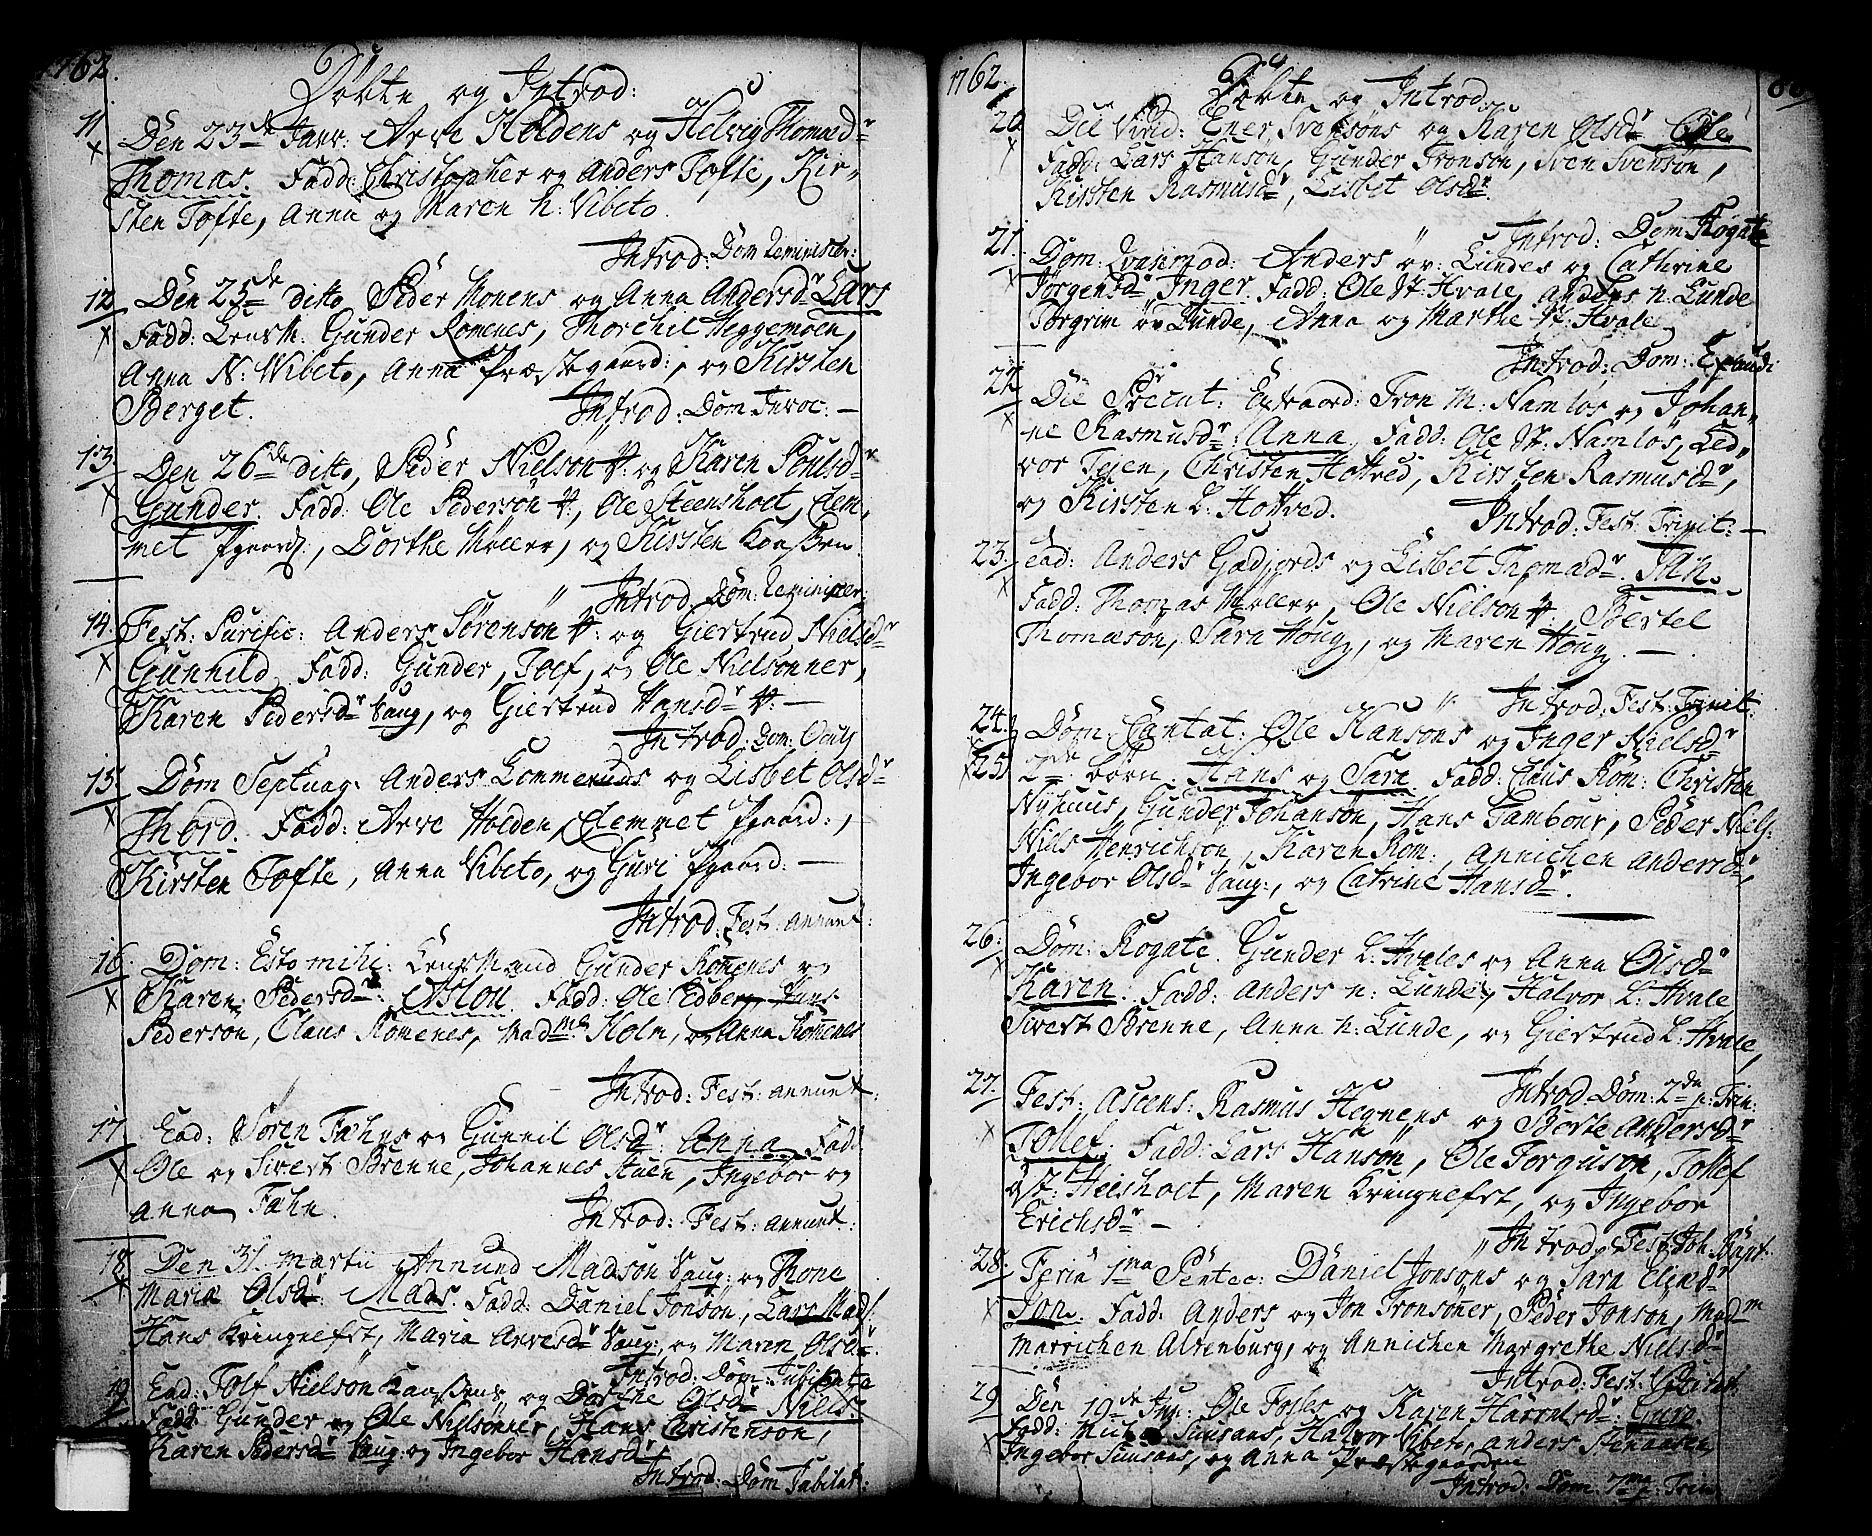 1762.
Döbte og Introd:
11 Den 23de Janr: Arve Holdens og Helvig Thomædr
Thomas. Fadd: Christopher og Anders Tofte, Kir-
sten Tofte, Anna og Maren N: Vibeto.
Introd: Dom Reminiscer:
12 Den 25de ditto Peder Monens og Anna Andersdr Lars
Fadd: Lensm: Gunder Romenes, Thorchil Heggemoen,
Anna N: Vibeto, Anna Præstegaard:, og Kirsten
Berget. Introd: Dom Invoc: —
13 Den 26de ditto, Peder Nielsön og Karen Poulsdr
Gunder. Fadd: Ole Pedersön, Ole Steensholt, Clem,
met Pgaard:, Dorthe Möller, og Kirsten Kaassen
Introd Dom: Reminiscer:
14. Fest: Purific: Anders Sörensön og Giertrud Nielsdr
Gunhild Fadd: Gunder, Tolf, og Ole Nielsönner,
Karen Pedersdr Saug, og Giertrud Hansdr —
Introd: Dom: Oculi
15 Dom Septuag: Anders Lommeruds og Lisbet Olsdr
Thord. Fadd: Arve Holden, Clemmet Pgaard:,
Kirsten Tofte, Anna Vibeto, og Guri Pgaard: —
Introd: Fest: Annunt:
16 Dom: Esto mihi: Lensmand Gunder Romenes og
Karen Pedersdr: Aslou Fadd: Ole Edberg, Hans
Pedersön, Claus Romenes, Madme Holm, og Anna Romenes
Introd: Fest: Annunt:
17 Ead: Sören Fæhns og Gunnil Olsdr Anna Fadd:
Ole og Sivert Brenne, Johannes Stuen, Ingebor og
Anna Fæhn. Introd: Fest: Annunt:
18 Den 31 Martii Annund Madsön Saug: og Thone
Maria Olsdr: Mads. Fadd: Daniel Jonsön, Lars Mads:
Hans Kringnefst, Maria Arvesdr Saug:, og Maren Olsdr.
Introd: Dom: Jubilate
19 Ead: Tolf Nielsön Kaassens og Dorthe Olsdr Niels.
Fadd: Gunder og Ole Nielsönner, Hans Christensön,
Karen Pedersdr Saug: og Ingebor Hansdr
Introd: Dom Jubilat:
1762.
Döbte og Introd
20 Die Virid: Ener Svensöns og Karen Olsdr Ole
Fadd: Lars Hansön, Gunder Tronsön, Sven Svensön,
Kirsten Rasmusdr, Lisbet Olsdr.
Introd: Dom Rogate
21. Dom: Qvasimod: Anders öv: Lundes og Cathrine
Jörgensdr Inger. Fadd: Ole St: Hvale, Anders N: Lunde
Torgrim öv: Lunde, Anna og Marthe St: Hvale
Introd: Dom: Exaudi
22 Die Precat: Extraord: Tron M: Namlös og Johan,,
ne Rasmusdr Anna Fadd: Ole St: Namlös, Led,,
vor Teien, Christen Hottved, Kirsten Rasmusdr,
og Kirsten L: Hottved. Introd: Fest: Trinit: —
23. Ead: Anders Gadjords og Lisbet Thomædr. Jan.
Fadd: Thomas Möller, Ole Nielsön, Bertel
Thomæsön, Sara Houg, og Maren Houg. —
Introd: Fest: Trinit:
24. Dom: Cantat: Ole Hansöns og Inger Nielsdr
25. 2de börn Hans og Sara Fadd: Claus Rom: Christen
Nyhuus, Gunder Johansön, Hans Tambour, Peder Niels:
Niels Henrichsön, Karen Rom:, Annichen Andersdr,
Ingebor Olsdr Saug:, og Catrine Hansdr.
26. Dom: Rogate Gunder L: Hvales og Anna Olsdr
Karen. Fadd: Anders N: Lunde, Halvor L: Hvale
Sivert Brenne, Anna N: Lunde, og Giertrud L: Hvale,
Introd Dom: 2da p: Trin:
27. Fest: Ascens: Rasmus Hegnens og Berte Andersdr
Tollef. Fadd: Lars Hansön, Ole Torgusön, Tollef
St: Heisholt, Maren Kringnefst, og Ingebor
Erichsdr — Introd: Fest Joh: Bapt:
28. Feria 1ma Pentec: Daniel Jonsöns og Sara Elind
Jon. Fadd: Anders og Jon Tronsöner, Peder Jonsön, Madm
Marrichen Altenburg, og Annichen Margrethe Nielsdr
Introd: Fest: Visitat
29 Den 19de Jun: Ole Fosses og Karen Harrelsdr: Guro.
Fadd: Michel Simsans, Halvor Vibeto, Anders Stenaasen,
Ingebor Simsans, og Anna Præstegaarden
Introd: Dom: 7ma p: Trin